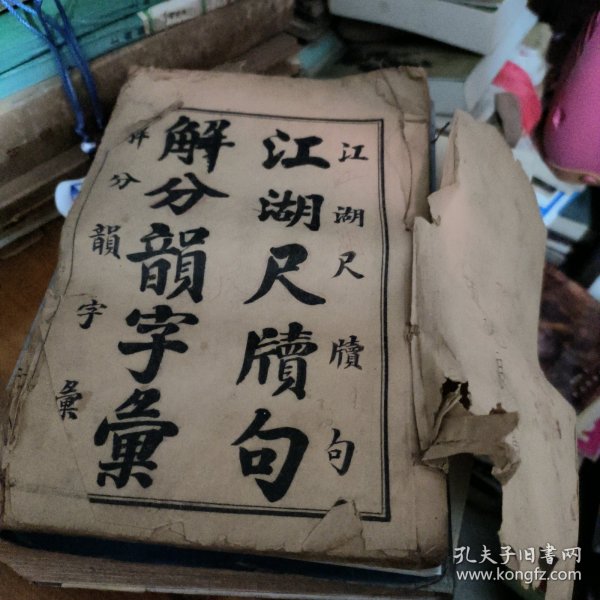 江湖尺牘句
江湖尺牘句
解分韻字彙
分韻字彙
孔夫子旧书网
www.kongfz.com